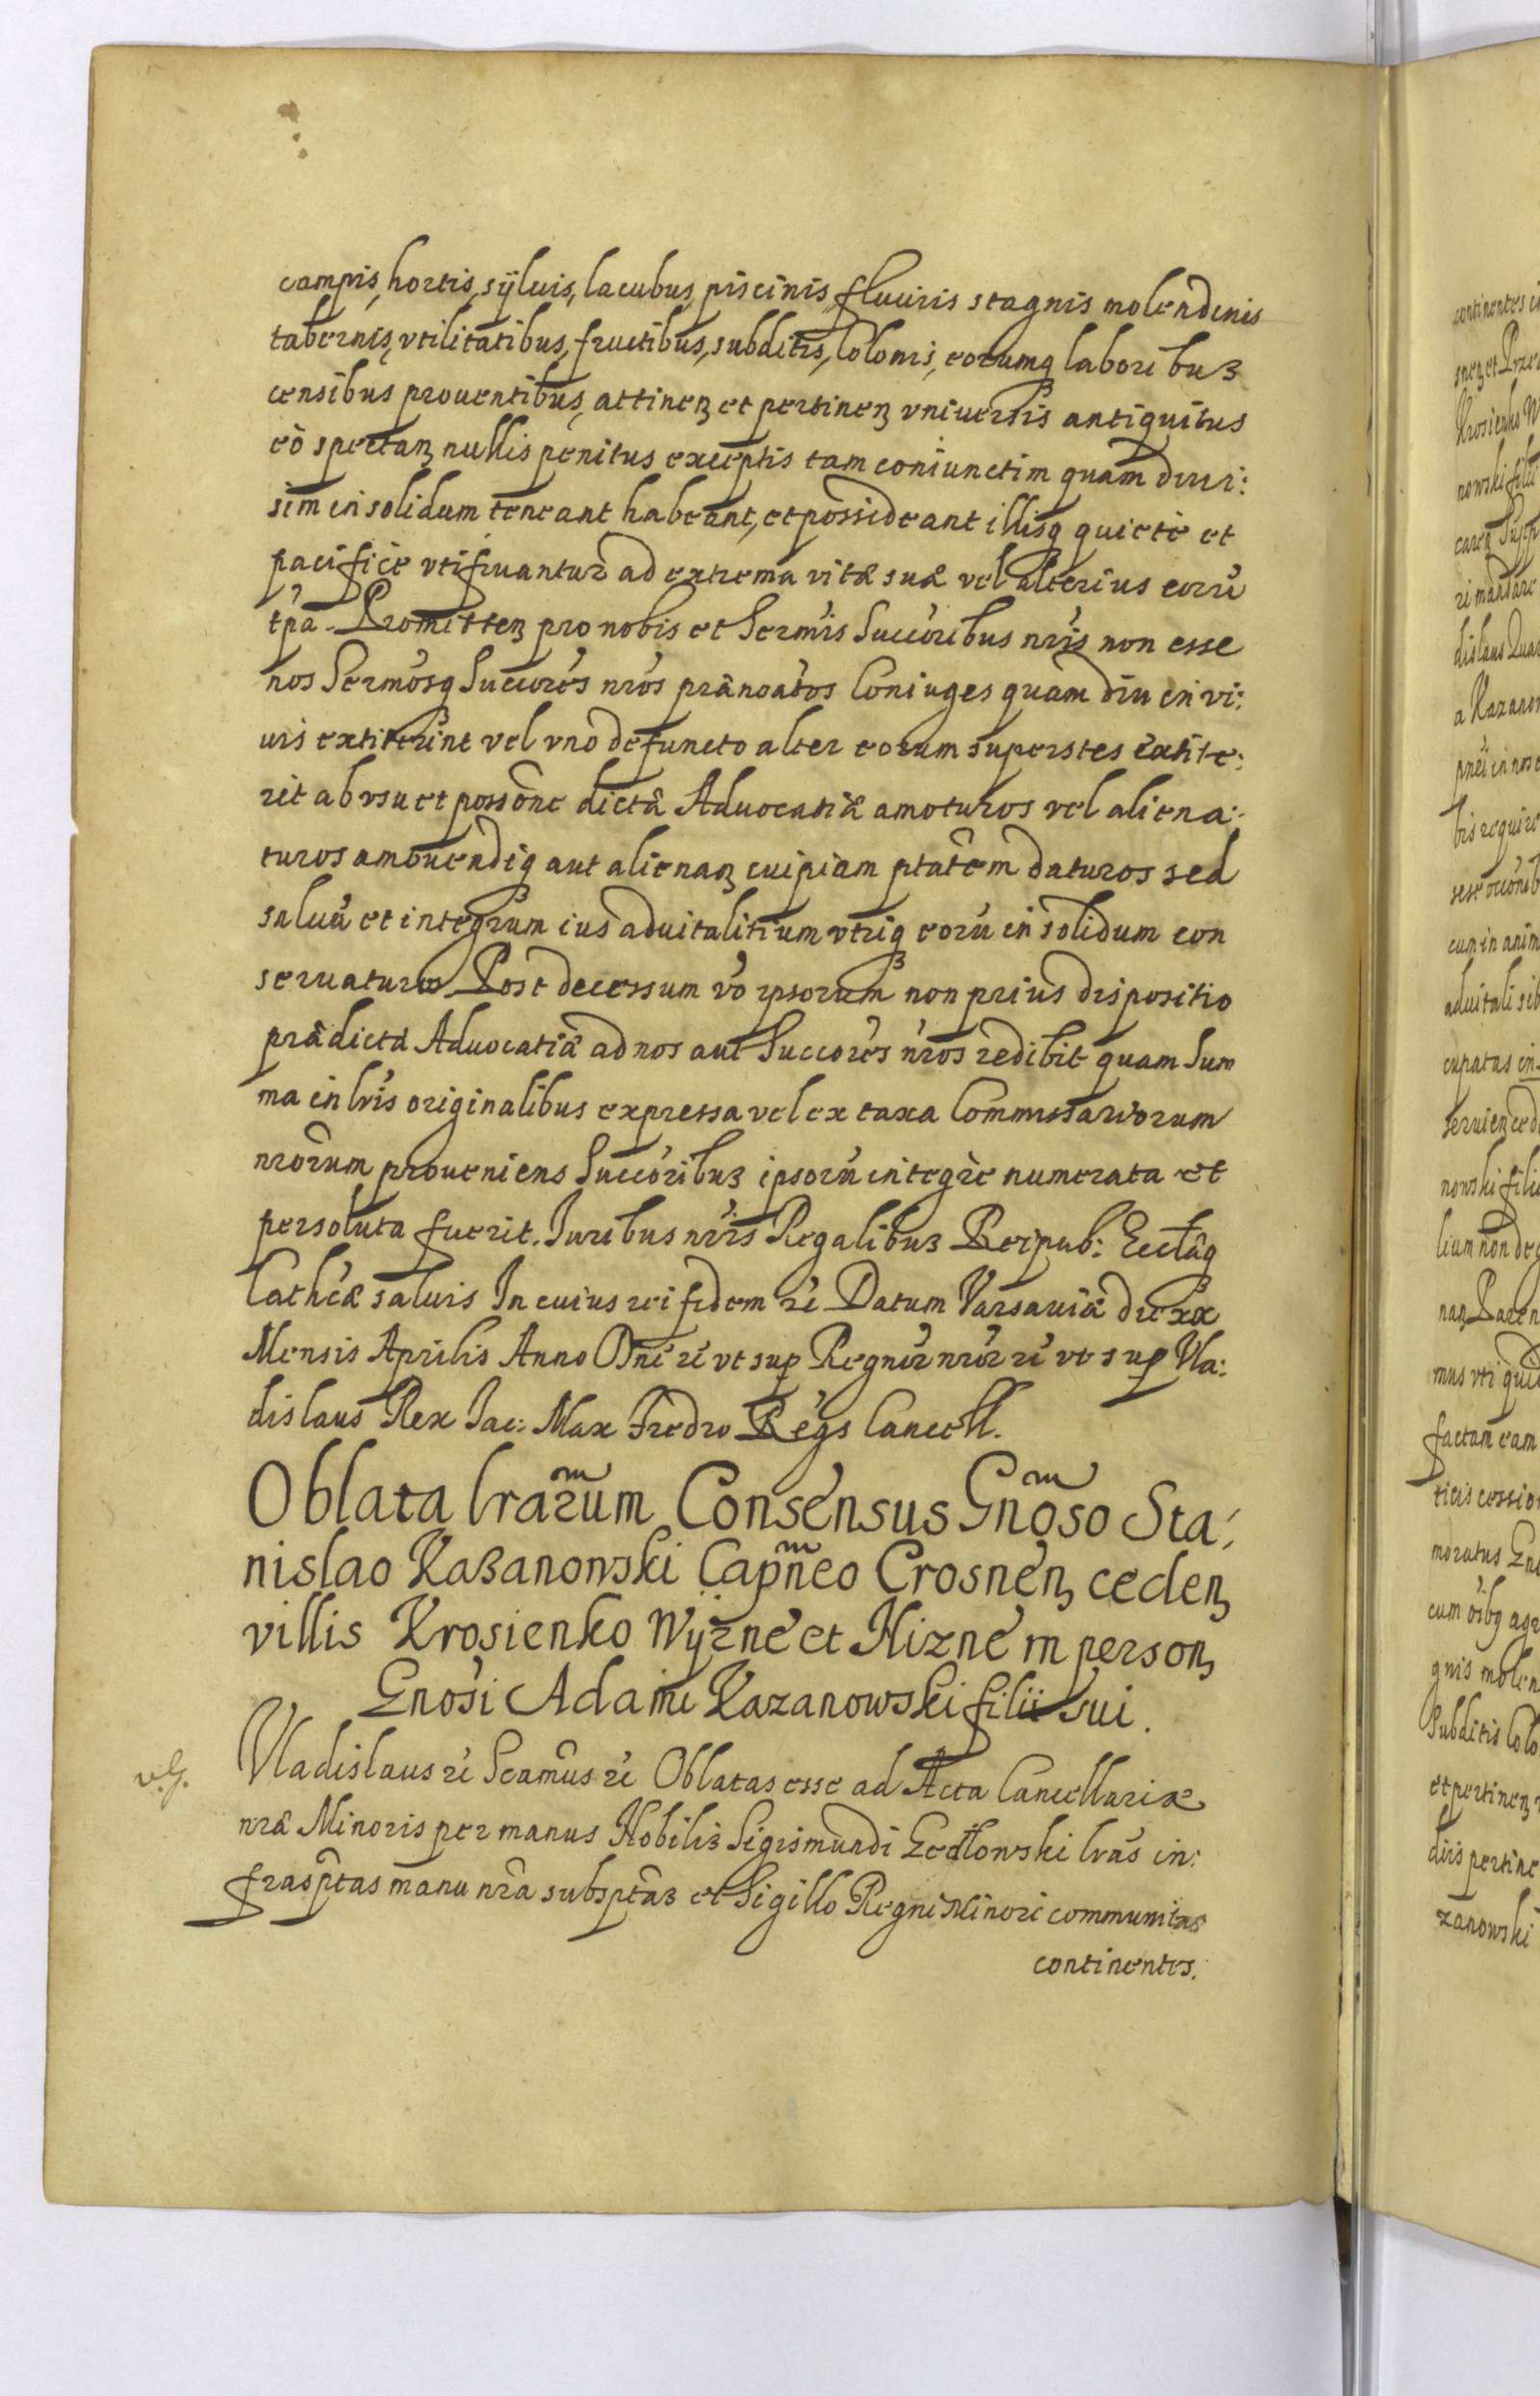 campis, hortis, sÿluis, lacubus, piscinis, fluuiis stagnis molendinis
tabernis, vtilitatibus, fructibus, subditis, Colonis, eorumq laboribus
censibus prouentibus, attinen et pertinen vniuersis antiquitus
eò spectan nullis penitus exceptis tam coniunctim quam diui:
sim in solidum teneant habeant, et possideant illisq quietè et
pacificè vti fruantur ad extrema vitæ suæ vel alterius eorū
tpa. Promitten pro nobis et Sermis Succoribus nris non esse
nos Sermosq Succores nros prænoatos Coniuges quam diu in vi:
uis extiterint vel vno defuncto alter eorum superstes extite:
rit ab vsu et possone dictæ Aduocatiæ amoturos vel aliena:
turos amouendiq aut alienan cuipiam ptatem daturos sed
saluū et integrum ius aduitalitium vtriq eorū in solidum con
seruaturos Post decessum vo ipsorum non prius dispositio
prædictæ Aduocatiæ ad nos aut Succores nros redibit quam Sum
ma in lris originalibus expressa vel ex taxa Commissariorum
nrorum proueniens Succoribus ipsorū integrè numerata et
persoluta fuerit. Iuribus nris Regalibus Reipub: Ecclæq
Cathcæ saluis In cuius rei fidem rč Datum Varsauiæ die xx
Mensis Aprilis Anno Dni rč vt sup Regnor nror rč vt sup Vla:
dislaus Rex Iac: Max Fredro Regs Cancell.
Oblata lrarum Consensus Gnoso Sta:
nislao Kazanowski Capneo Crosnen ceden
villis Krosienko Wÿzne et Nizne in person
Gnosi Adami Kazanowski filii sui.
v.g. Vladislaus rč Seamus rč Oblatas esse ad Acta Cancellariæ
nræ Minoris per manus Nobilis Sigismundi Zedlowski lras in:
frasptas manu nra subsptas et Sigillo Regni Minori communitas
continentes.